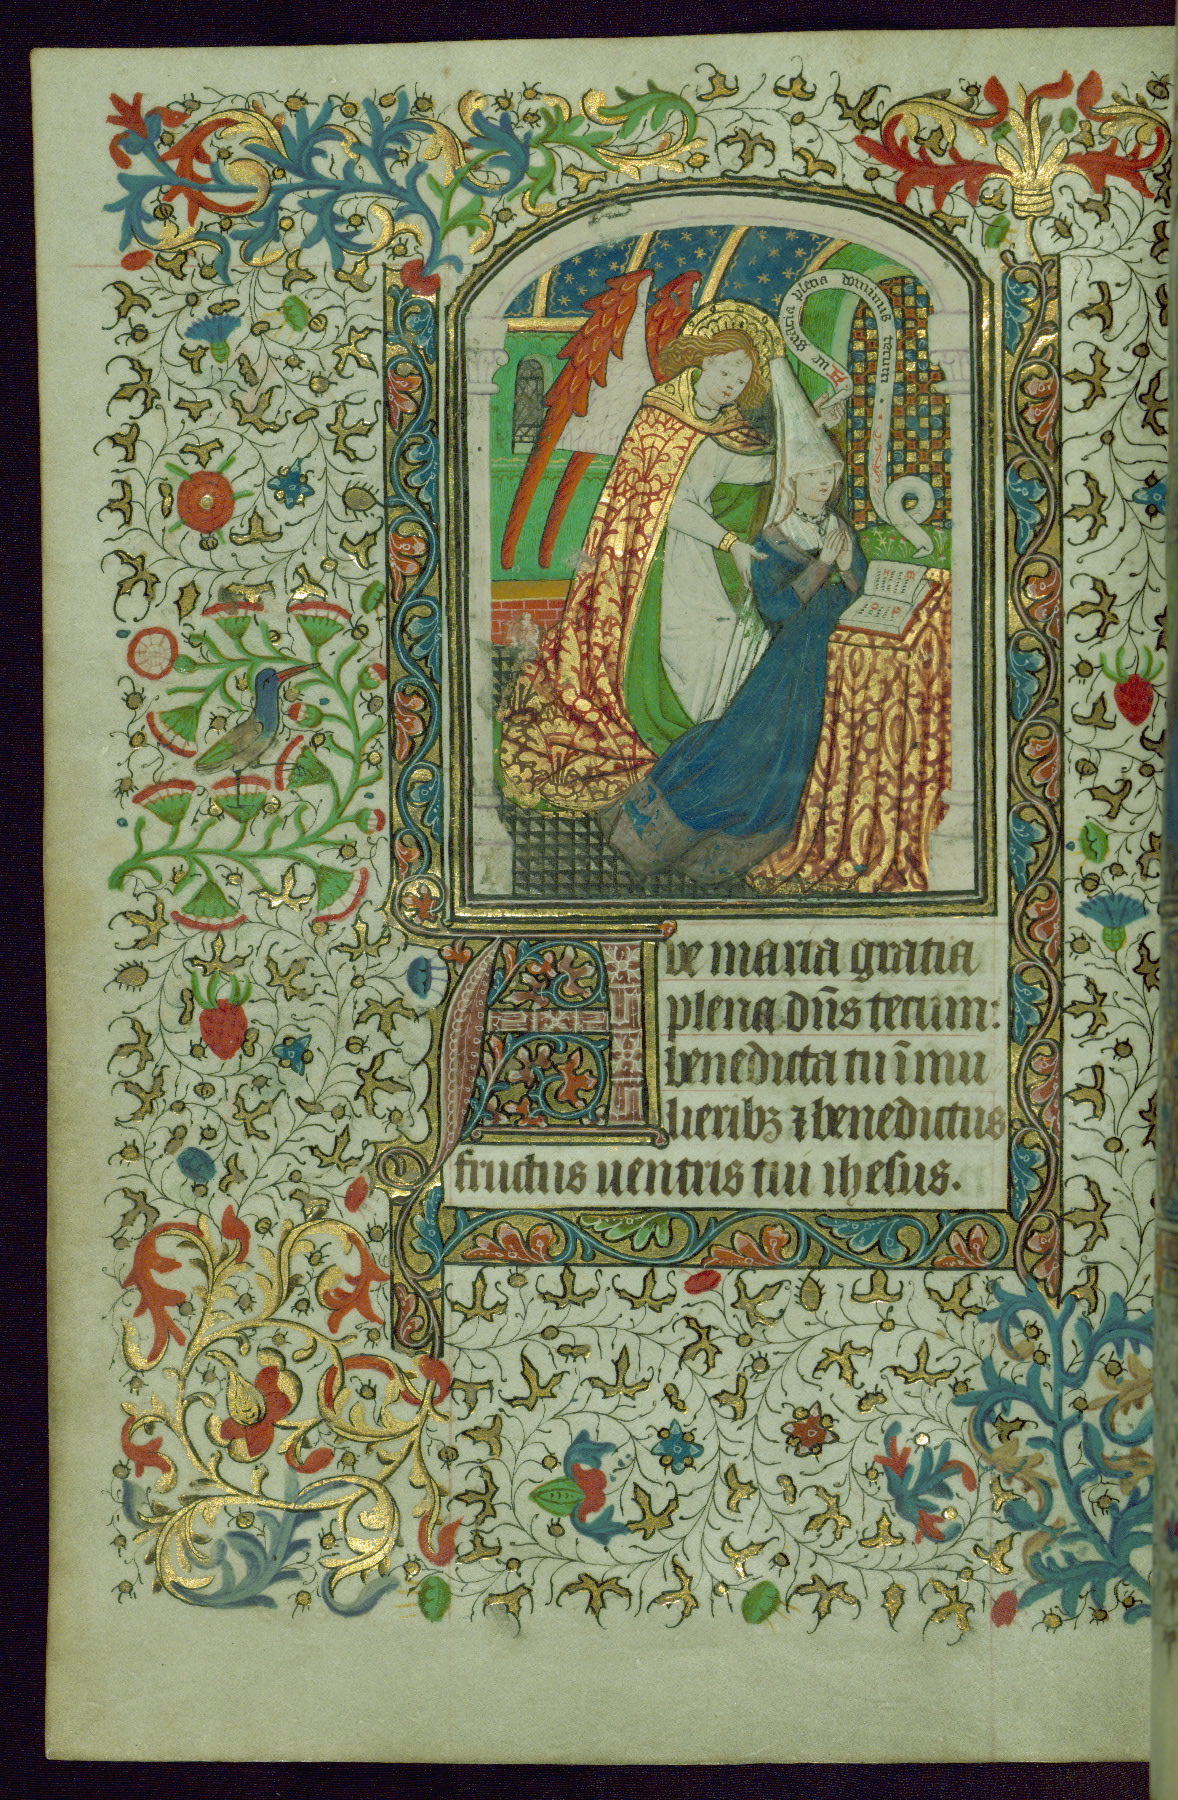 gracia plena dominus
tecum
Ave maria gratia
plena dn̄s tecum:
benedicta tu ī mu
lieribꝫ ⁊ benedictus
fructus uentris tui ihesus.